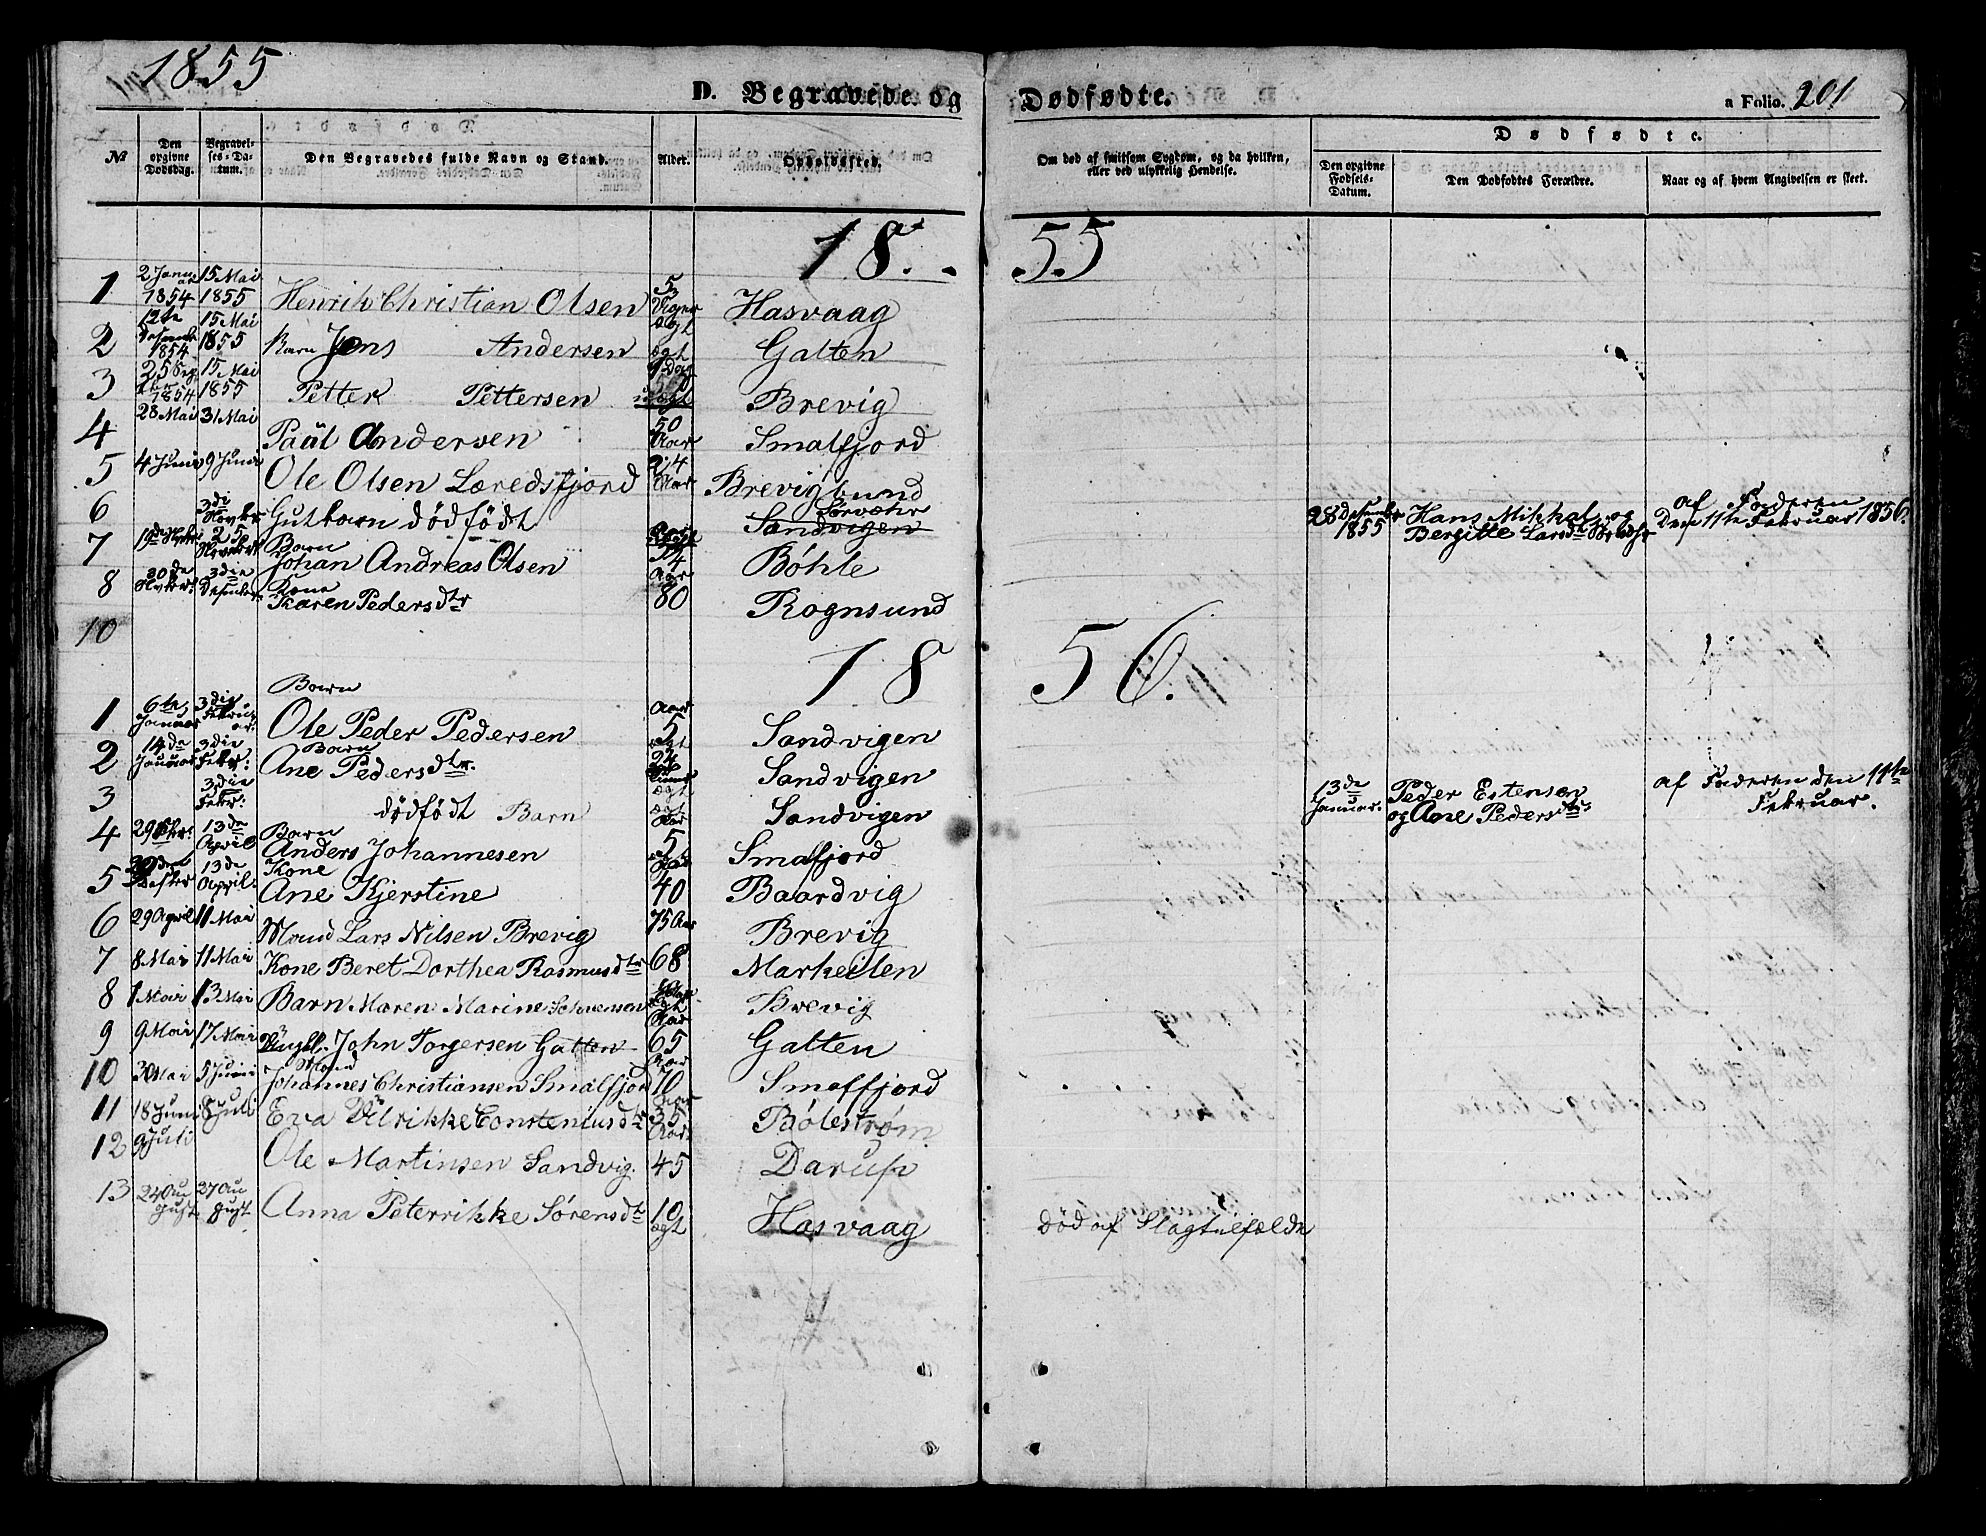 1855
D. Begravede og Dødfødte.
a Folio. 201
Dødfødte.
No
Den opgivne Dødsdag.
Begravelses-Datum.
Den Begravedes fulde Navn og Stand.
Alder.
Opholdssted.
Om død af smitsom Sygdom, og da hvilken, eller ved ulykkelig Hendelse.
Den opgivne Fødsels-Datum.
Den Dødfødtes Forældre.
Naar og af hvem Angivelsen er skeet.
18.. 55
1 2 Janu 1854 15 Mai 1855 Henrik Christian Olsen 5 Uger ægt Hasvaag
2 12te 1854 15 Mai 1855 Barn Jens Andersen ægt Galten
3 1854 15 Mai 1855 Petter Pettersen Brevig
4 28 Mai 31 Mai Paul Andersen 50 Aar Smalfjord
5 4 Juni 9 Juni Ole Olsen Læredsfjord 24 Aar Brevigbund
6 3di Gutbarn dödfödt Sörvæhr Sandvigen 28 1855 Hans Mikkals og Bergitte Larsd af Faderen Den 11te Februar 1856.
7 25 Barn Johan Andreas Olsen Böhle
8 30de 3die Kone Karen Pedersdtr Aar 80 Rognsund
10
18 56.
1 6te Januar 3die Februar. Barn Ole Peder Pedersen Aar 5 ægt Sandvigen
2 14de Januar 3die Febr: Barn Ane Pedersdtr. 24 Sandvigen
3 3die Febr: dödfödt Barn ægt Sandvigen 13de Januar. Peder Estensen og Ane Pedersdtr. af Faderen den 11te Februar.
4 13de April Barn Anders Johannesen Aar 5 Smalfjord
5 13de April: Kone Ane Kjerstine Aar 40 Baardvig
6 29 April 11 Mai Mand Lars Nilsen Brevig 75 Aar Brevig
7 8 Mai 11 Mai Kone Beret Dorthea Rasmusdtr 68 Markeilen
8 1 Mai 13 Mai Barn Maren Marine ægt Brevig
9 9 Mai 17 Mai John Torgersen Galten Aar 65 Galten
10 30 Mai 5 Juni Mand Johannes Christiansen Smalfjord 70 Smalfjord
11 18 Juni 8 Juli Eva Ulrikke Constensdtr 35 Bölestrøm
12 9 Juli Ole Martinsen Sandvig. Aar 45
13 24 August 27 August Anna Peterrikke Sörensdtr 10 ægt Hasvaag död af Slagtilfælde